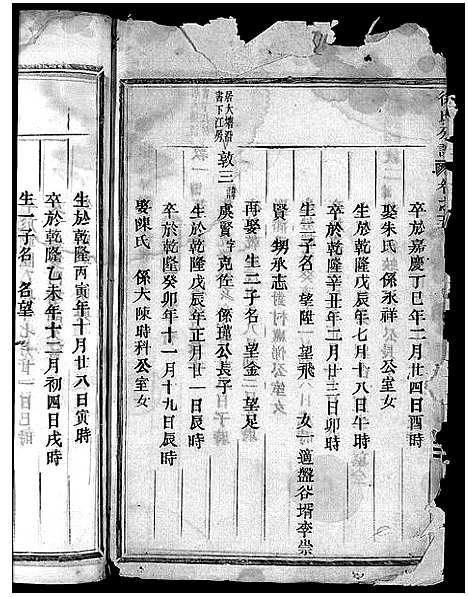 徐氏宗譜　卷之五
卒於嘉慶丁巳年二月廿四日酉時
娶朱氏　係永祥公室女
生於乾隆戊辰年七月十八日午時
卒於乾隆辛丑年二月廿三日卯時
生二子名　望陞　望飛　女一適盤谷壻李崇
賢　甥承志
再娶　生二子名　望金　望足
居大塘沿
書下江房　敦三　諱虞賢字克佐　係瑾公長子
生於乾隆戊辰年正月廿一日辰時
卒於乾隆癸卯年十一月十九日辰時
娶陳氏　係大陳時科公室女
生於乾隆丙寅年十月廿八日寅時
卒於乾隆乙未年十二月初四日戌時
生一子名　名望